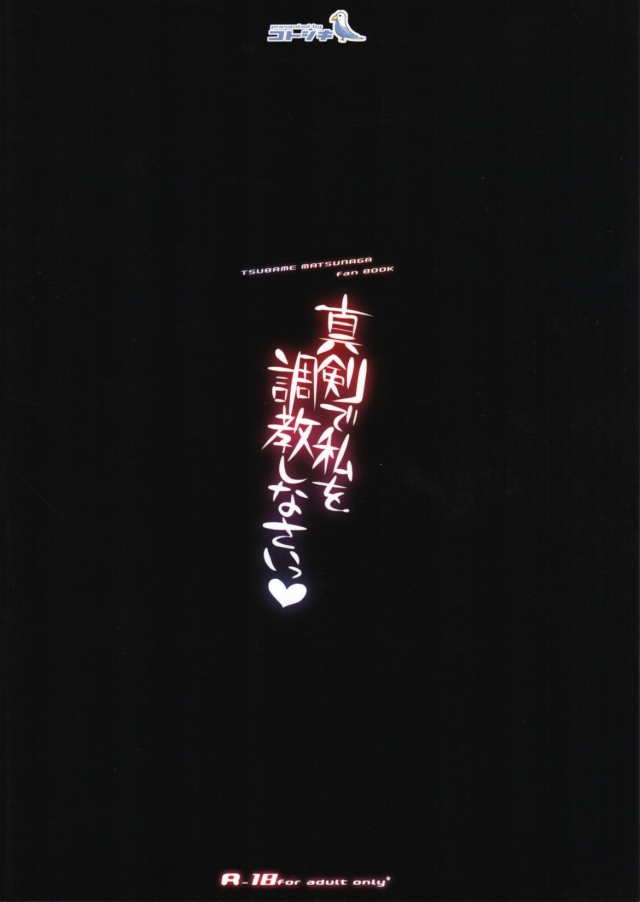 presented by
コトジキ
TSUBAME MATSUNAGA
fan BOOK
真剣で私を
調教しなさいっ♥
R-18 for adult only*